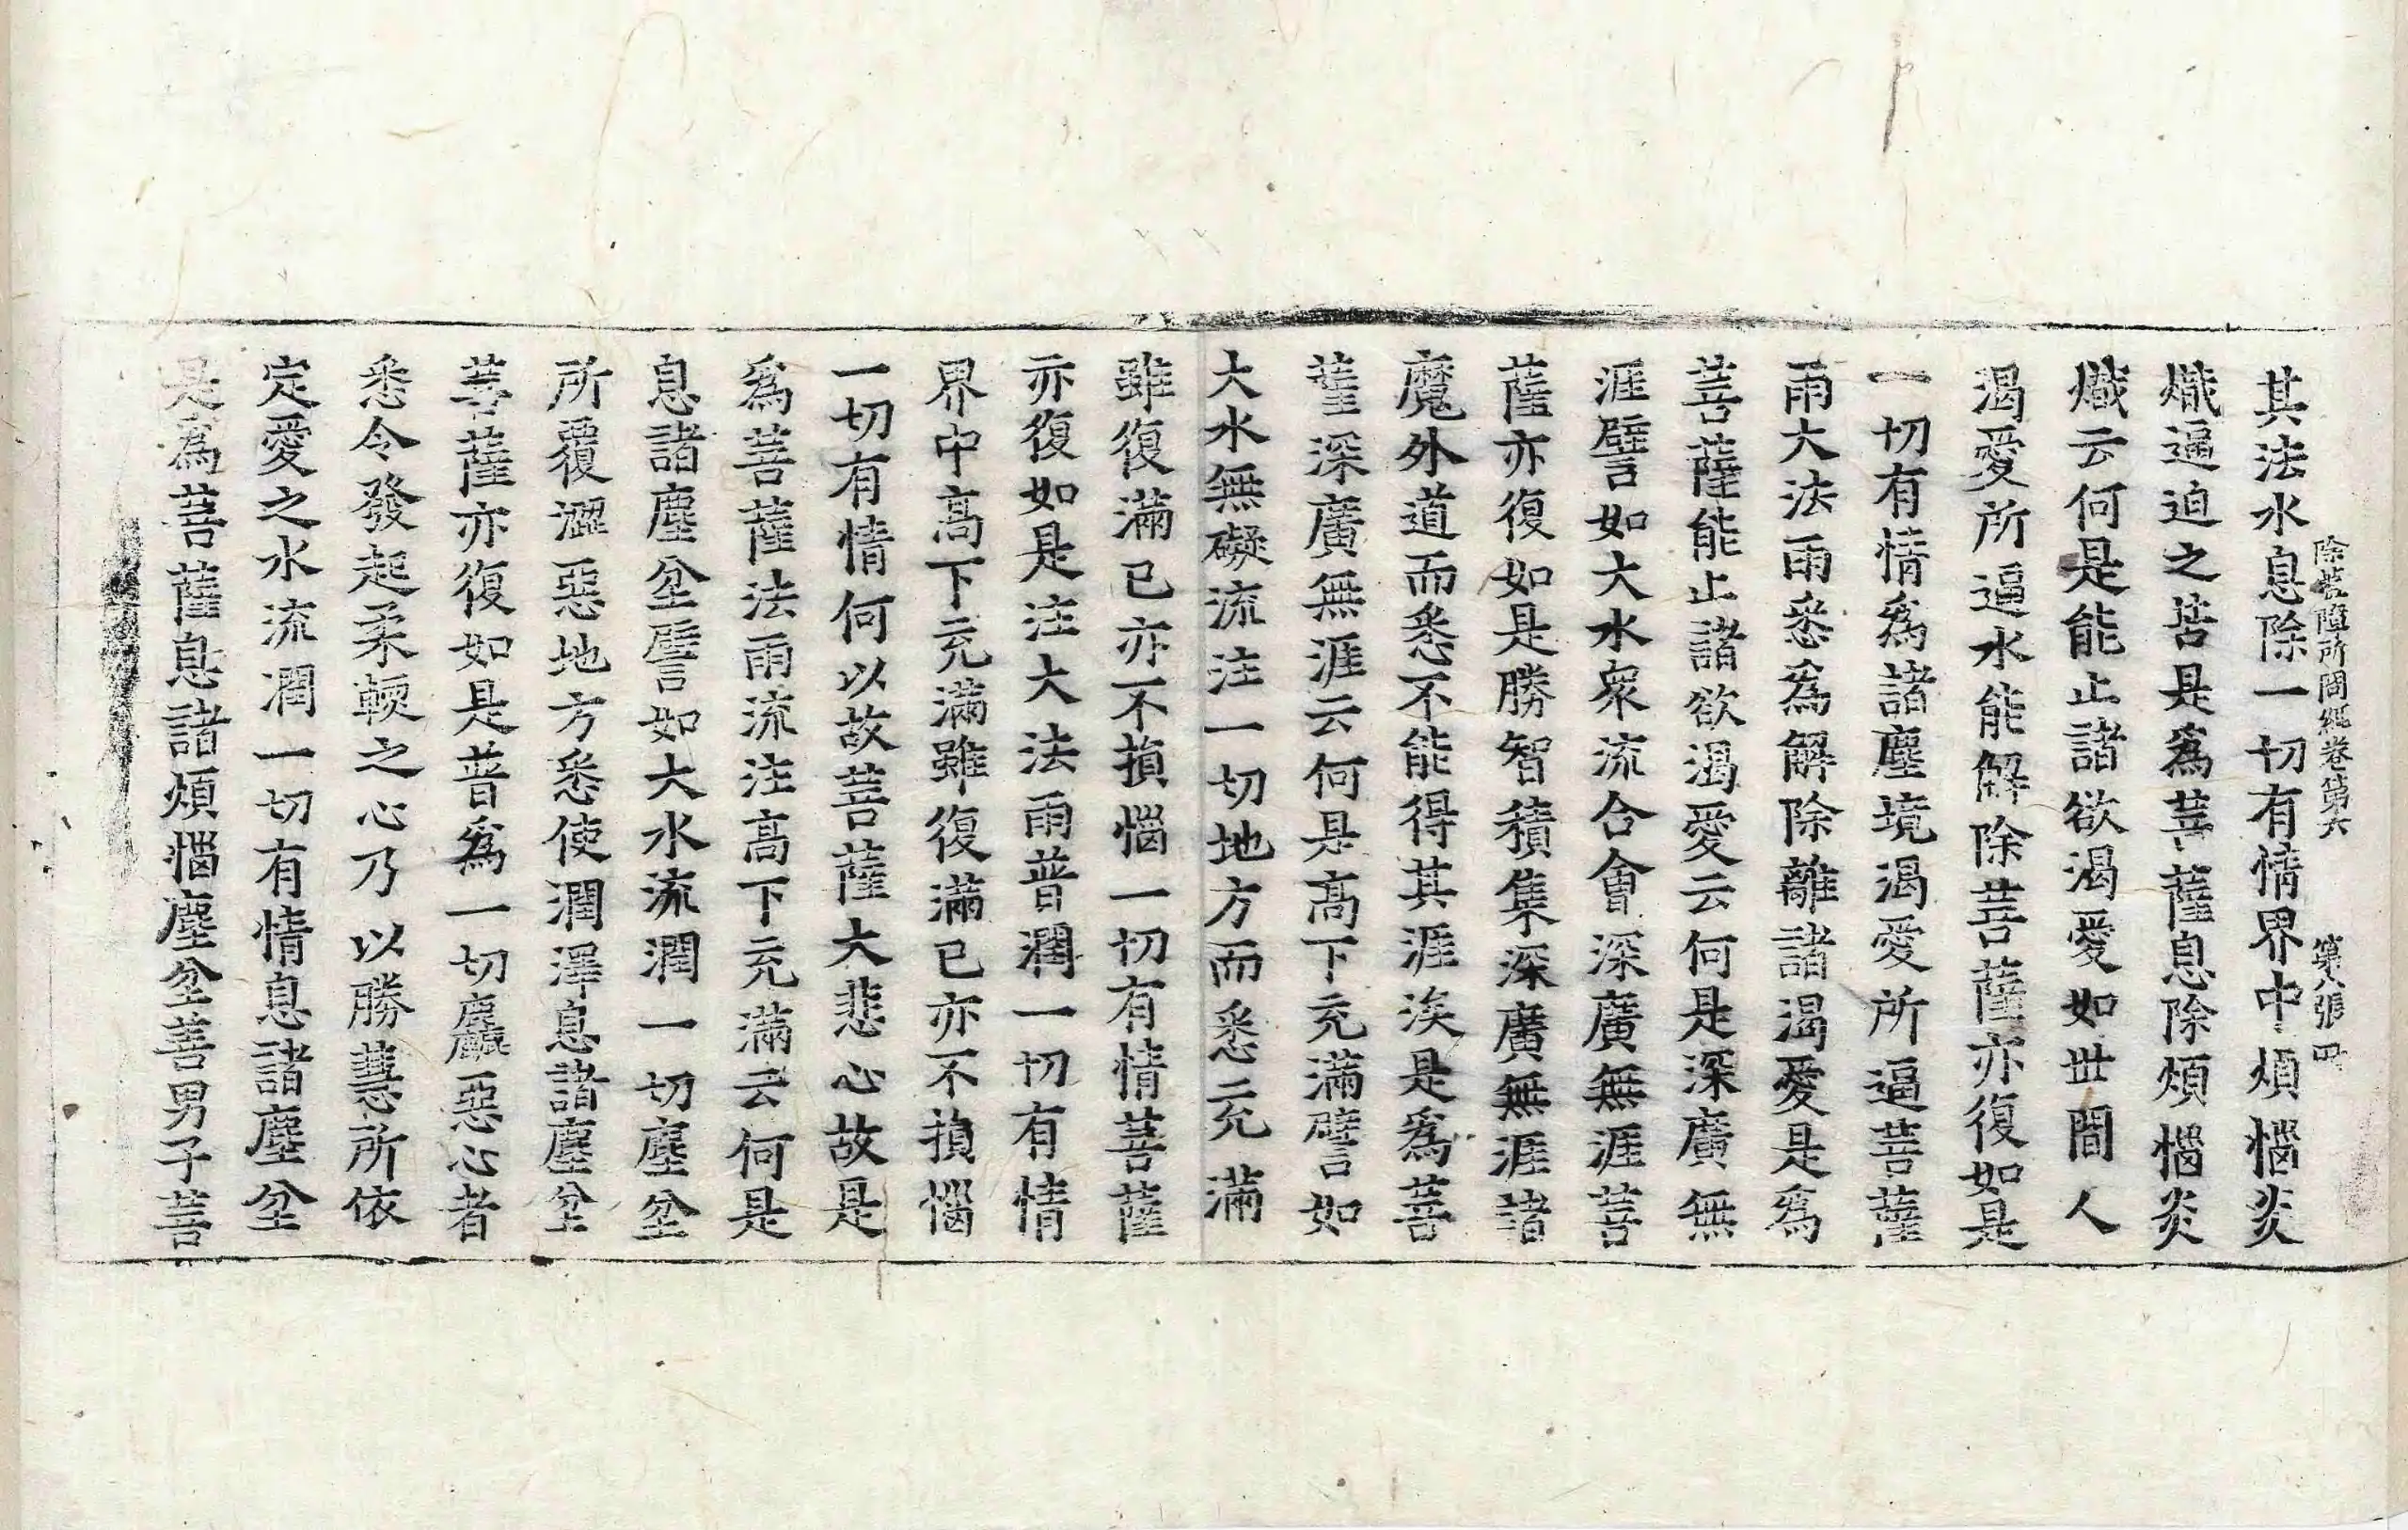 除蓋障所問經卷第六 第八張 㓛
其法水息除一切有情界中煩惱炎
熾逼迫之苦是爲菩薩息除煩惱炎
熾云何是能止諸欲渴愛如世間人
渴愛所逼水能解除菩薩亦復如是
一切有情爲諸塵境渴愛所逼菩薩
雨大法雨悉爲解除離諸渴愛是爲
菩薩能止諸欲渴愛云何是深廣無
涯譬如大水衆流合會深廣無涯菩
薩亦復如是勝智積集深廣無涯諸
魔外道而悉不能得其涯涘是爲菩
薩深廣無涯云何是高下充滿譬如
大水無礙流注一切地方而悉充滿
雖復滿已亦不損惱一切有情菩薩
亦復如是注大法雨普潤一切有情
界中高下充滿雖復滿已亦不損惱
一切有情何以故菩薩大悲心故是
爲菩薩法雨流注高下充滿云何是
息諸塵坌譬如大水流潤一切塵坌
所覆澀惡地方悉使潤澤息諸塵坌
菩薩亦復如是普爲一切麤惡心者
悉令發起柔輭之心乃以勝慧所依
定愛之水流潤一切有情息諸塵坌
是爲菩薩息諸煩惱塵坌善男子菩